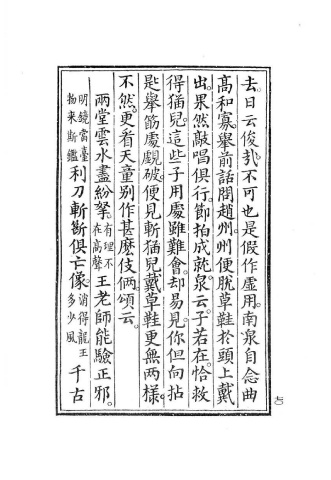 去。日云俊不可也是假作虛用。南泉自念曲
高和寡。舉前話問趙州。州便脫草鞋於頭上戴
出。果然敲唱俱行。節拍成就。泉云。子若在。恰救
得猫兒。這些子用處雖難會。却易見。你但向拈
匙舉筯處覷破。便見斬猫兒戴草鞋更無兩樣。
不然。更看天童別作甚麼伎倆。頌云。
兩堂雲水盡紛拏。有理不在高聲王老師能驗正邪。
明鏡當臺物來斯鑑利刀斬斷俱亡像。消得龍王多少風千古
七〇